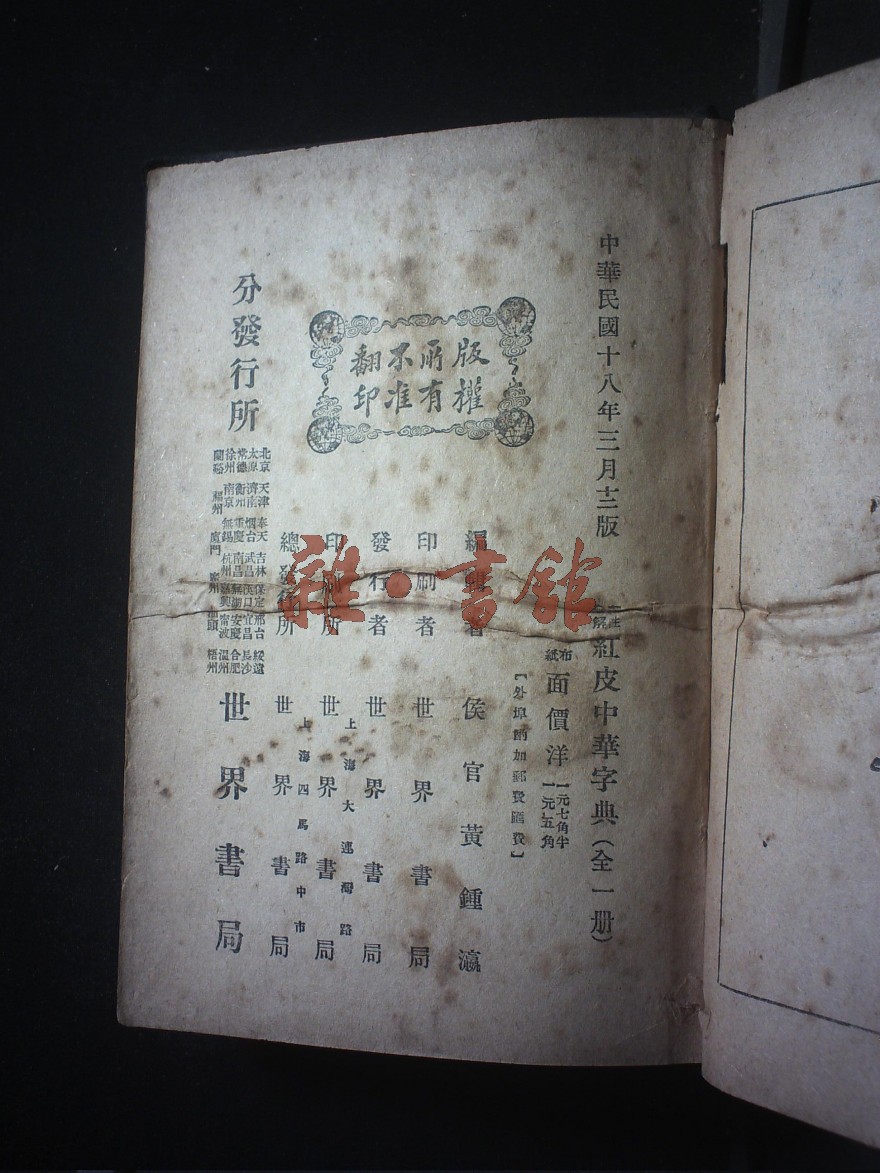 中華民國十八年三月十二版
註
解
紅皮中華字典(全一册)
布
紙
面價洋
一元七角半
一元五角
【外埠酌加郵費匯費】
版權
所有
不准
翻印
侯官黃鍾瀛
印刷者 世界書局
發行者 世界書局
上海大連灣路
印刷所 世界書局
上海四馬路中市
總發行所 世界書局
分發行所
北京 天津 奉天 吉林 保定 邢台 綏遠
太原 濟南 烟台 武昌 漢口 宜昌 長沙
常德 衡州 重慶 南昌 蕪湖 安慶 合肥
徐州 南京 無錫 杭州 嘉興 甯波 溫州
蘭谿 福州 廈門 廣州 梧州
世界書局
雜·書館